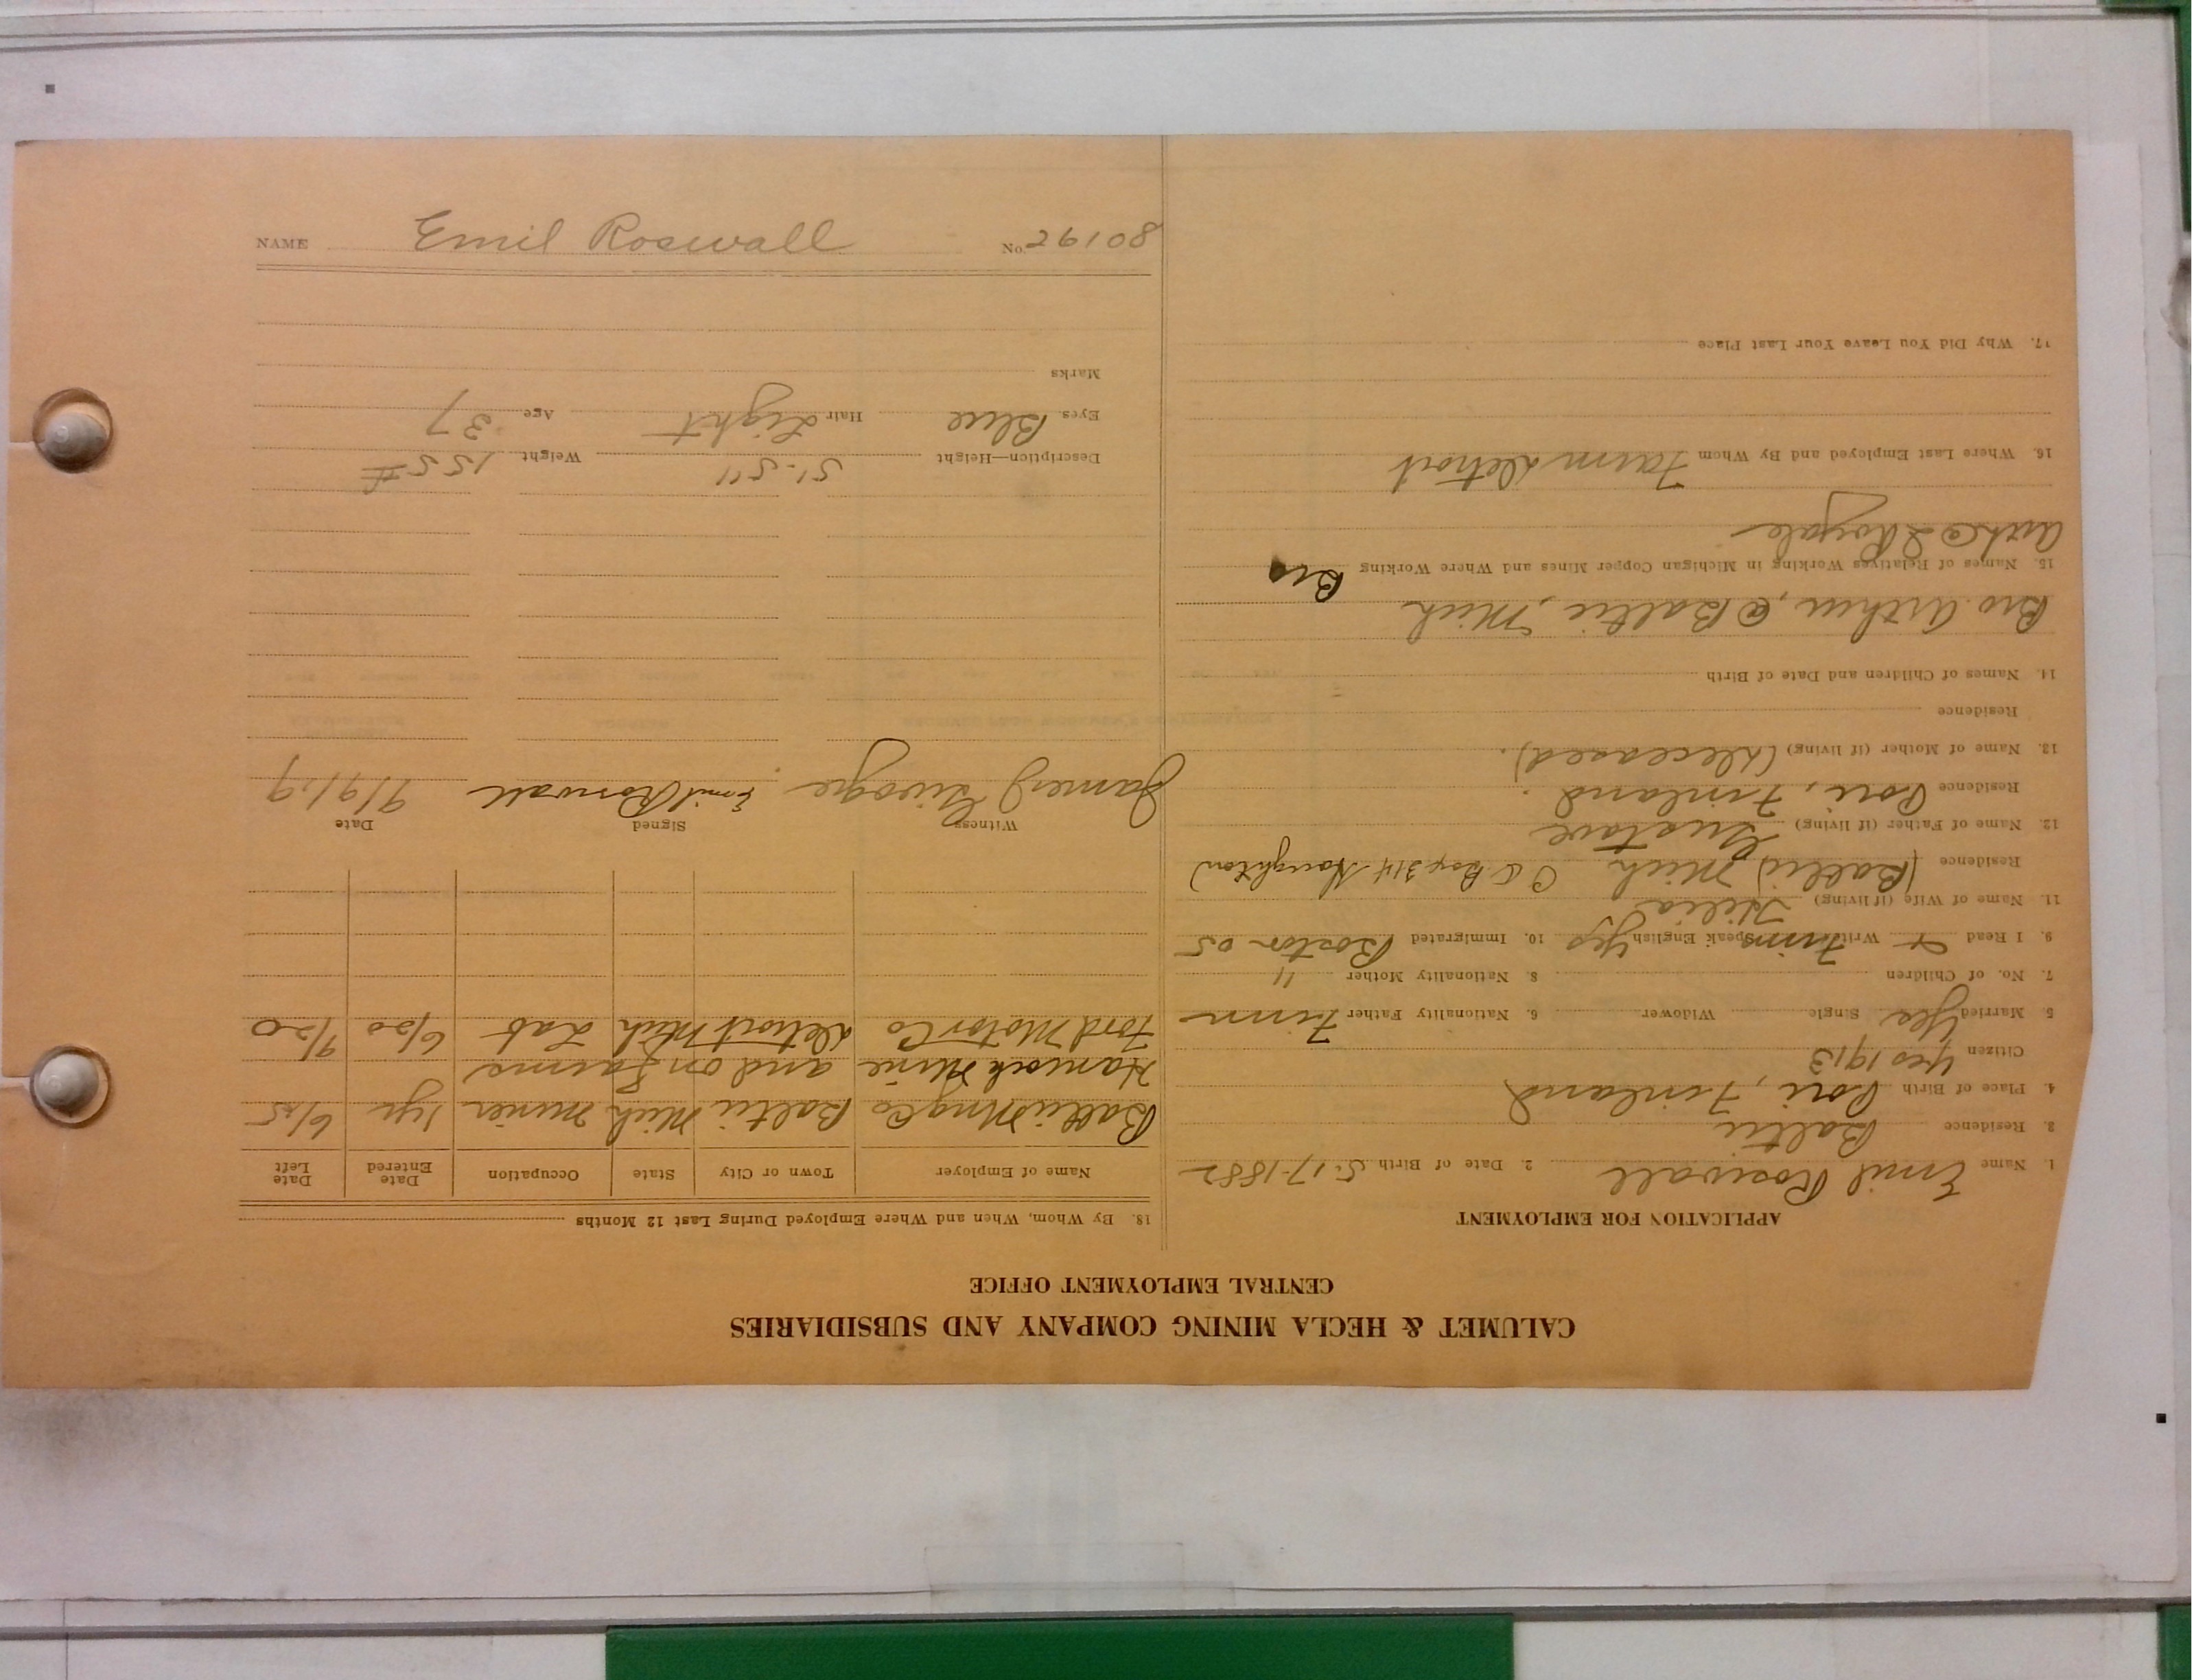 CALUMET & HECLA MINING COMPANY AND SUBSIDIARIES
CENTRAL EMPLOYMENT OFFICE
APPLICATION FOR EMPLOYMENT
1. Name Emil Roswall 2. Date of Birth 5-17-1882
3. Residence Baltic
4. Place of Birth Pori, Finland
Citizen Yes 1913
5. Married Yes Single Widower 6. Nationality Father Finn
7. No. of Children 8. Nationality Mother "
9. I Read + Write Finn Speak English Yes 10. Immigrated Boston 05
11. Name of Wife (if living) Hilia
Residence (Baltic) Mich C C Box 314 Houghton)
12. Name of Father (if living) Gustave
Residence Pori, Finland.
13. Name of Mother (if living) (Deceased).
Residence
14. Names of Children and Date of Birth
Bro Arthur, @ Baltic, Mich
15. Names of Relatives Working in Michigan Copper Mines and Where Working Bro
Arth @ I Royale
16. Where Last Employed and By Whom Farm Detroit
17. Why Did You Leave Your Last Place
18. By Whom, When and Where Employed During Last 12 Months
Name of Employer Town or City State Occupation Date Entered Date Left
Baltic Mng Co Baltic Mich Miner 1 yr 6/15
Hancock Mine and on Farms
Ford Motor Co Detroit Mich Lab 6/20 9/20
Witness Signed Date
James J Emil Roswall 9/9/19
Description—Height 5'-5" Weight 155 #
Eyes Blue Hair Light Age 37
Marks
NAME Emil Roswall No. 26108